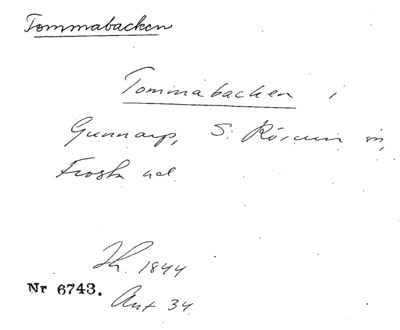 Tommabacken
Tommabacken i
Gunnarp, S. Rörum sn,
Frosta hd.
Th. 1844
Nr 6743.
Ant 34.